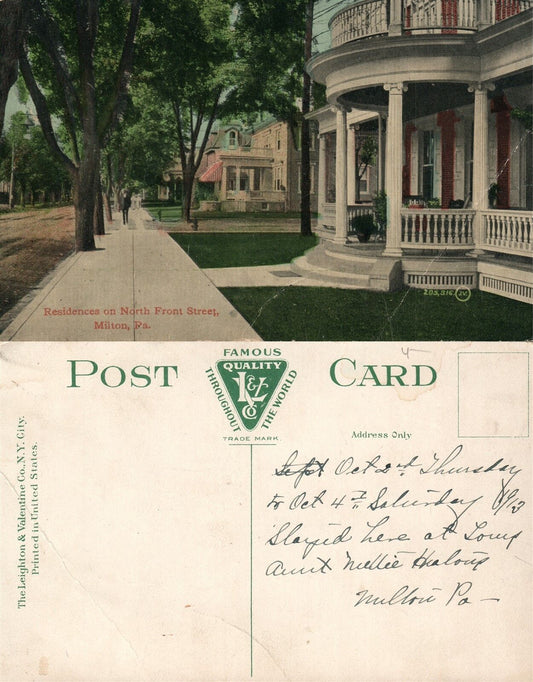 Residences on North Front Street,
Milton, Pa.
205,516. JV
POST CARD
FAMOUS
QUALITY
THROUGHOUT
THE WORLD
L&V
Co
TRADE MARK.
4
Address Only
The Leighton & Valentine Co., N.Y. City.
Printed in United States.
Sept Oct 2nd Thursday
to Oct 4th Saturday 1913
Stayed here at
Aunt Nettie
Milton Pa —